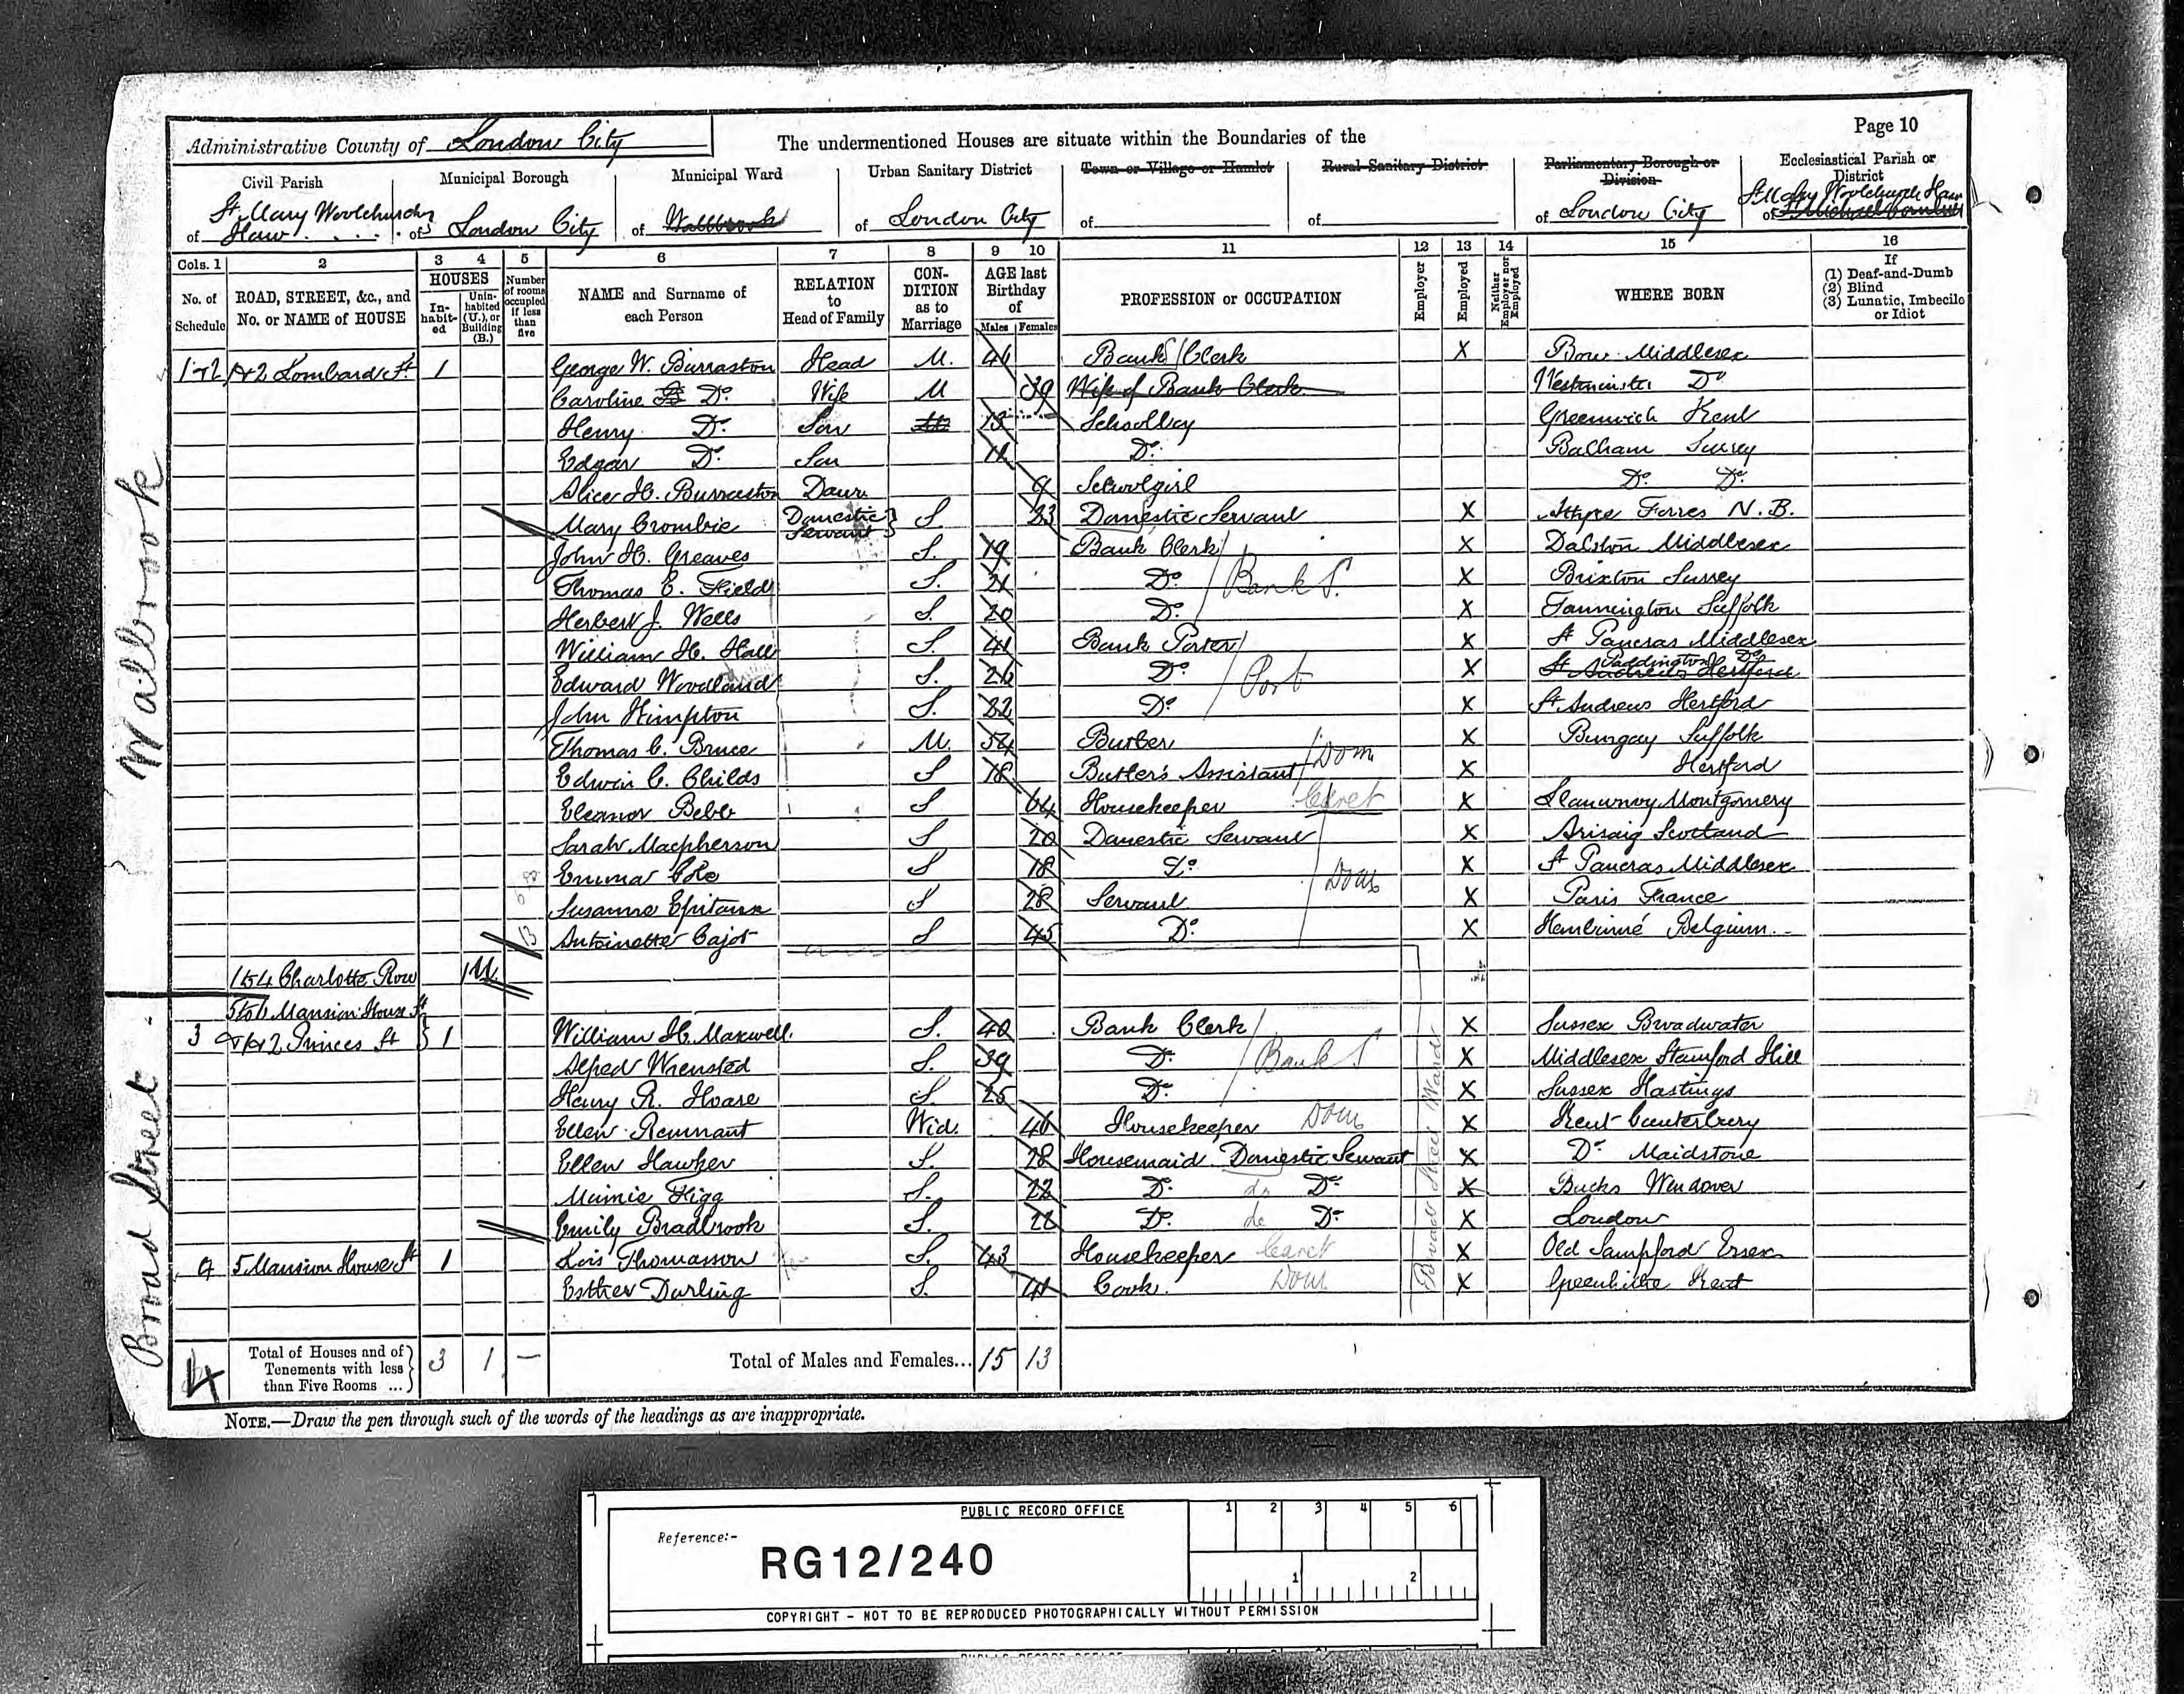 Page 10
Administrative County of London City The undermentioned Houses are situate within the Boundaries of the
Civil Parish Municipal Borough Municipal Ward Urban Sanitary District Town or Village or Hamlet Rural Sanitary District Parliamentary Borough or Division Ecclesiastical Parish or District
of St. Mary Woolchurch Haw of London City of Wallbrook of London City of of of London City of St Mary Woolchurch Haw St Michael Cornhill
Cols. 1 2 3 4 5 6 7 8 9 10 11 12 13 14 15 16
No. of Schedule ROAD, STREET, &c., and No. or NAME of HOUSE HOUSES In-habit-ed Unin-habited (U.), or Building (B.) Number of rooms occupied if less than five NAME and Surname of each Person RELATION to Head of Family CON-DITION as to Marriage AGE last Birthday of Males Females PROFESSION or OCCUPATION Employer Employed Neither Employer nor Employed WHERE BORN If (1) Deaf-and-Dumb (2) Blind (3) Lunatic, Imbecile or Idiot
1+2 1+2 Lombard St 1 George W. Burraston Head M. 46 Bank Clerk X Bow Middlesex
Caroline Do Wife M 39 Wife of Bank Clerk Westminster Do
Henry Do Son 13 Schoolboy Greenwich Kent
Edgar Do Son 11 Do Balham Surrey
Alice H. Burraston Daur 9 Schoolgirl Do Do
Mary Crombie Domestic Servant S. 23 Domestic Servant X Forres N.B.
John H. Greaves S. 19 Bank Clerk X Dalston Middlesex
Thomas E. Field S. 21 Do Bank S. X Brixton Surrey
Herbert J. Wells S. 20 Do X Tannington Suffolk
William H. Hall S. 41 Bank Porter X St Pancras Middlesex
Edward Woodland S. 26 Do Port X Paddington Do St Andrews Hertford
John Kimpton S. 22 Do X St Andrews Hertford
Thomas C. Bruce M. 54 Butler X Bungay Suffolk
Edwin C. Childs S 18 Butler's Assistant Dom X Hertford
Eleanor Bebb S 64 Housekeeper Caret X Llanwnog Montgomery
Sarah Macpherson S 20 Domestic Servant X Arisaig Scotland
Emma Cole S 18 Do X St Pancras Middlesex
Susanne S 28 Servant Dom X Paris France
Antoinette Cajot S 45 Do X Belgium
1 to 4 Charlotte Row 1 U.
5 to 6 Mansion House St
3 & 1+2 Princes St 1 William H. Maxwell S. 40 Bank Clerk X Sussex Broadwater
Alfred Wrensted S. 39 Do Bank S X Middlesex Stamford Hill
Henry R. Hoare S 25 Do X Sussex Hastings
Ellen Remnant Wid. 46 Housekeeper Dom X Kent Canterbury
Ellen Hawker S. 28 Housemaid Domestic Servant X Do Maidstone
Minnie Figg S. 22 Do do Do X Bucks Wendover
Emily Bradbrook S. 22 Do do Do X London
4 5 Mansion House St 1 Lois Thomasson S. 43 Housekeeper Caret X Old Sampford Essex
Esther Durling S. 41 Cook Dom X Greenhithe Kent
Walbrook
Broad Street
Broad Street Ward
14 Total of Houses and of Tenements with less than Five Rooms ... 3 1 — Total of Males and Females... 15 13
NOTE.—Draw the pen through such of the words of the headings as are inappropriate.
PUBLIC RECORD OFFICE 1 2 3 4 5 6
Reference:-
RG12/240
1 2
COPYRIGHT - NOT TO BE REPRODUCED PHOTOGRAPHICALLY WITHOUT PERMISSION